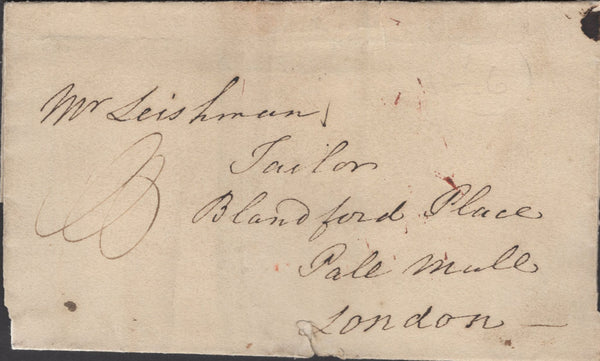 Mr Leishman
Tailor
Blandford Place
Pale Mall
London